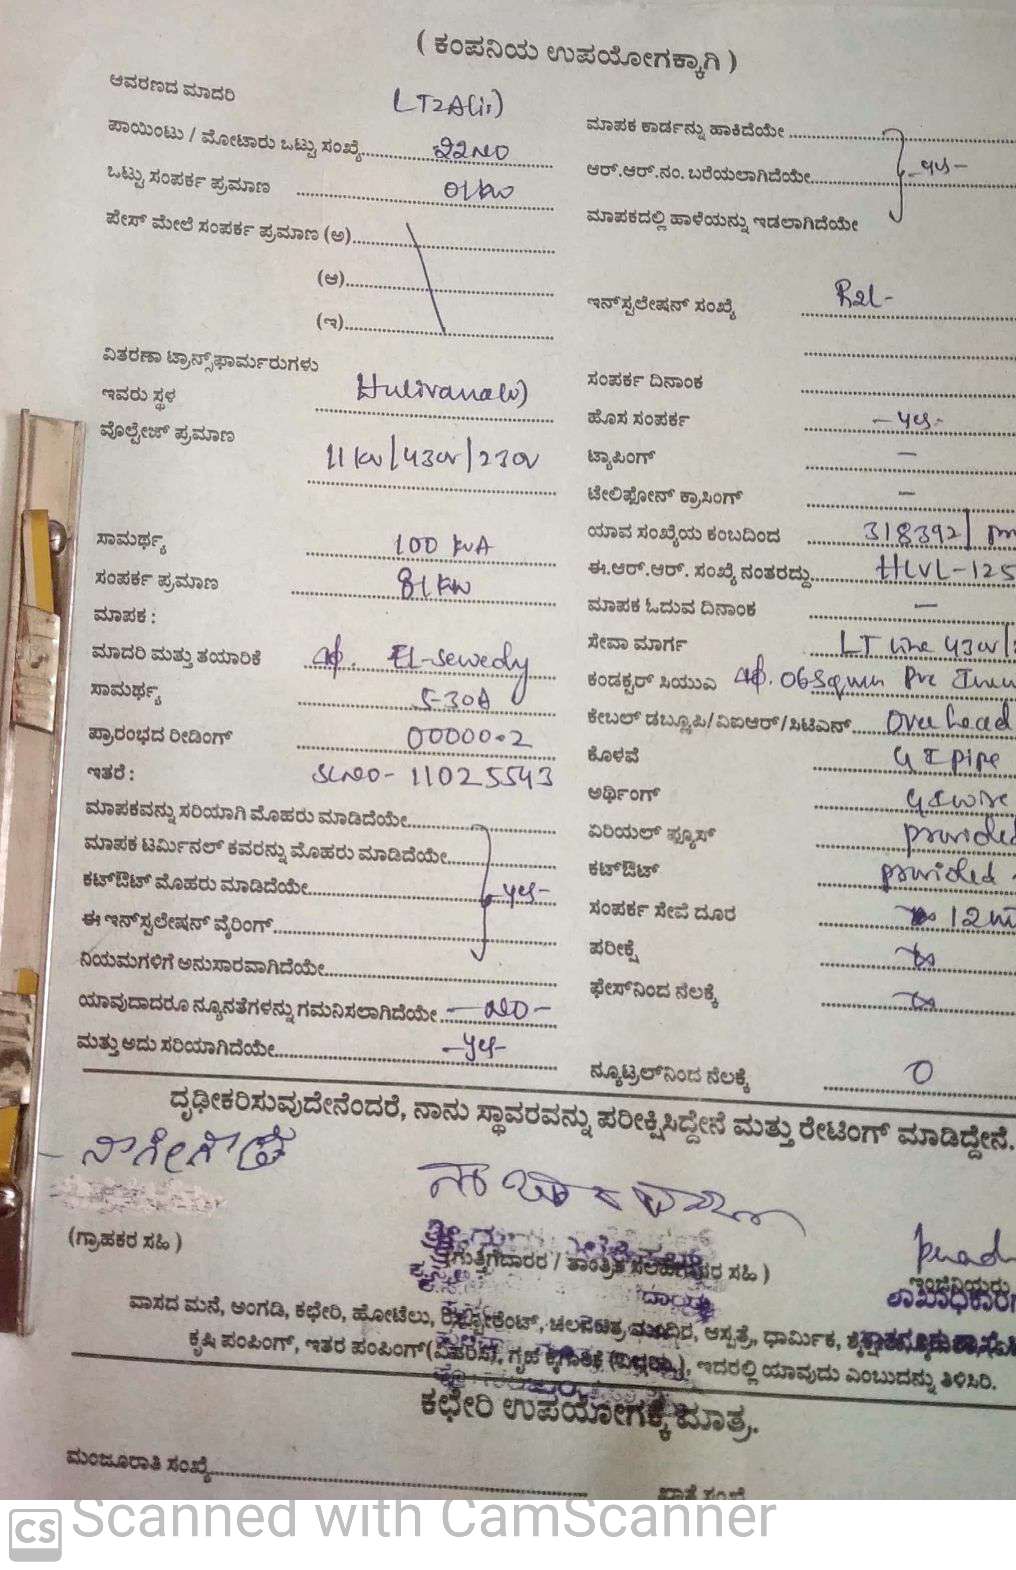 ( ಕಂಪನಿಯ ಉಪಯೋಗಕ್ಕಾಗಿ )
ಆವರಣದ ಮಾದರಿ LT2A(ii)
ಪಾಯಿಂಟು / ಮೋಟಾರು ಒಟ್ಟು ಸಂಖ್ಯೆ 22 NO
ಒಟ್ಟು ಸಂಪರ್ಕ ಪ್ರಮಾಣ 01 KW
ಪೇಸ್ ಮೇಲೆ ಸಂಪರ್ಕ ಪ್ರಮಾಣ (ಅ)
(ಆ)
(ಇ)
ವಿತರಣಾ ಟ್ರಾನ್ಸ್‌ಫಾರ್ಮರುಗಳು
ಇವರು ಸ್ಥಳ
ವೊಲ್ಟೇಜ್ ಪ್ರಮಾಣ 11 KV/430V/230V
ಸಾಮರ್ಥ್ಯ 100 KVA
ಸಂಪರ್ಕ ಪ್ರಮಾಣ 81 KW
ಮಾಪಕ :
ಮಾದರಿ ಮತ್ತು ತಯಾರಿಕೆ El-sewedy
ಸಾಮರ್ಥ್ಯ 5-30A
ಪ್ರಾರಂಭದ ರೀಡಿಂಗ್ 00000.2
ಇತರೆ : SL NO- 11025543
ಮಾಪಕವನ್ನು ಸರಿಯಾಗಿ ಮೊಹರು ಮಾಡಿದೆಯೇ
ಮಾಪಕ ಟರ್ಮಿನಲ್ ಕವರನ್ನು ಮೊಹರು ಮಾಡಿದೆಯೇ
ಕಟ್‌ಔಟ್ ಮೊಹರು ಮಾಡಿದೆಯೇ -yes-
ಈ ಇನ್‌ಸ್ಟಲೇಷನ್ ವೈರಿಂಗ್
ನಿಯಮಗಳಿಗೆ ಅನುಸಾರವಾಗಿದೆಯೇ
ಯಾವುದಾದರೂ ನ್ಯೂನತೆಗಳನ್ನು ಗಮನಿಸಲಾಗಿದೆಯೇ -NO-
ಮತ್ತು ಅದು ಸರಿಯಾಗಿದೆಯೇ -yes-
ಮಾಪಕ ಕಾರ್ಡನ್ನು ಹಾಕಿದೆಯೇ
ಆರ್.ಆರ್.ನಂ. ಬರೆಯಲಾಗಿದೆಯೇ -yes-
ಮಾಪಕದಲ್ಲಿ ಹಾಳೆಯನ್ನು ಇಡಲಾಗಿದೆಯೇ
ಇನ್‌ಸ್ಟಲೇಷನ್ ಸಂಖ್ಯೆ
ಸಂಪರ್ಕ ದಿನಾಂಕ
ಹೊಸ ಸಂಪರ್ಕ -yes-
ಟ್ಯಾಪಿಂಗ್ -
ಟೇಲಿಫೋನ್ ಕ್ರಾಸಿಂಗ್ -
ಯಾವ ಸಂಖ್ಯೆಯ ಕಂಬದಿಂದ 318392/
ಈ.ಆರ್.ಆರ್. ಸಂಖ್ಯೆ ನಂತರದ್ದು HLVL-125
ಮಾಪಕ ಓದುವ ದಿನಾಂಕ -
ಸೇವಾ ಮಾರ್ಗ LT line 430V/
ಕಂಡಕ್ಟರ್ ಸಿಯುಎ 06 sqmm PVC
ಕೇಬಲ್ ಡಬ್ಲೂಪಿ/ವಿಐಆರ್/ಸಿಟಿಎನ್ Over head
ಕೊಳವೆ GI pipe
ಅರ್ಥಿಂಗ್ GI wire
ಏರಿಯಲ್ ಫ್ಯೂಸ್ provided
ಕಟ್‌ಔಟ್ provided
ಸಂಪರ್ಕ ಸೇವೆ ದೂರ 12 m
ಪರೀಕ್ಷೆ
ಫೇಸ್‌ನಿಂದ ನೆಲಕ್ಕೆ
ನ್ಯೂಟ್ರಲ್‌ನಿಂದ ನೆಲಕ್ಕೆ 0
ದೃಢೀಕರಿಸುವುದೇನೆಂದರೆ, ನಾನು ಸ್ಥಾವರವನ್ನು ಪರೀಕ್ಷಿಸಿದ್ದೇನೆ ಮತ್ತು ರೇಟಿಂಗ್ ಮಾಡಿದ್ದೇನೆ.
(ಗ್ರಾಹಕರ ಸಹಿ )
(ಗುತ್ತಿಗೆದಾರರ / ತಾಂತ್ರಿಕ ಸಲಹೆಗಾರರ ಸಹಿ )
ಇಂಜಿನಿಯರು
ಶಾಖಾಧಿಕಾರಿ
ವಾಸದ ಮನೆ, ಅಂಗಡಿ, ಕಛೇರಿ, ಹೋಟೆಲು, ರೆಸ್ಟೋರೆಂಟ್, ಚಲನಚಿತ್ರ ಮಂದಿರ, ಆಸ್ಪತ್ರೆ, ಧಾರ್ಮಿಕ,
ಕೃಷಿ ಪಂಪಿಂಗ್, ಇತರ ಪಂಪಿಂಗ್(ವಿವರಿಸಿ), ಗೃಹ ಕೈಗಾರಿಕೆ ಇದರಲ್ಲಿ ಯಾವುದು ಎಂಬುದನ್ನು ತಿಳಿಸಿರಿ.
ಕಛೇರಿ ಉಪಯೋಗಕ್ಕೆ ಮಾತ್ರ.
ಮಂಜೂರಾತಿ ಸಂಖ್ಯೆ
CS Scanned with CamScanner